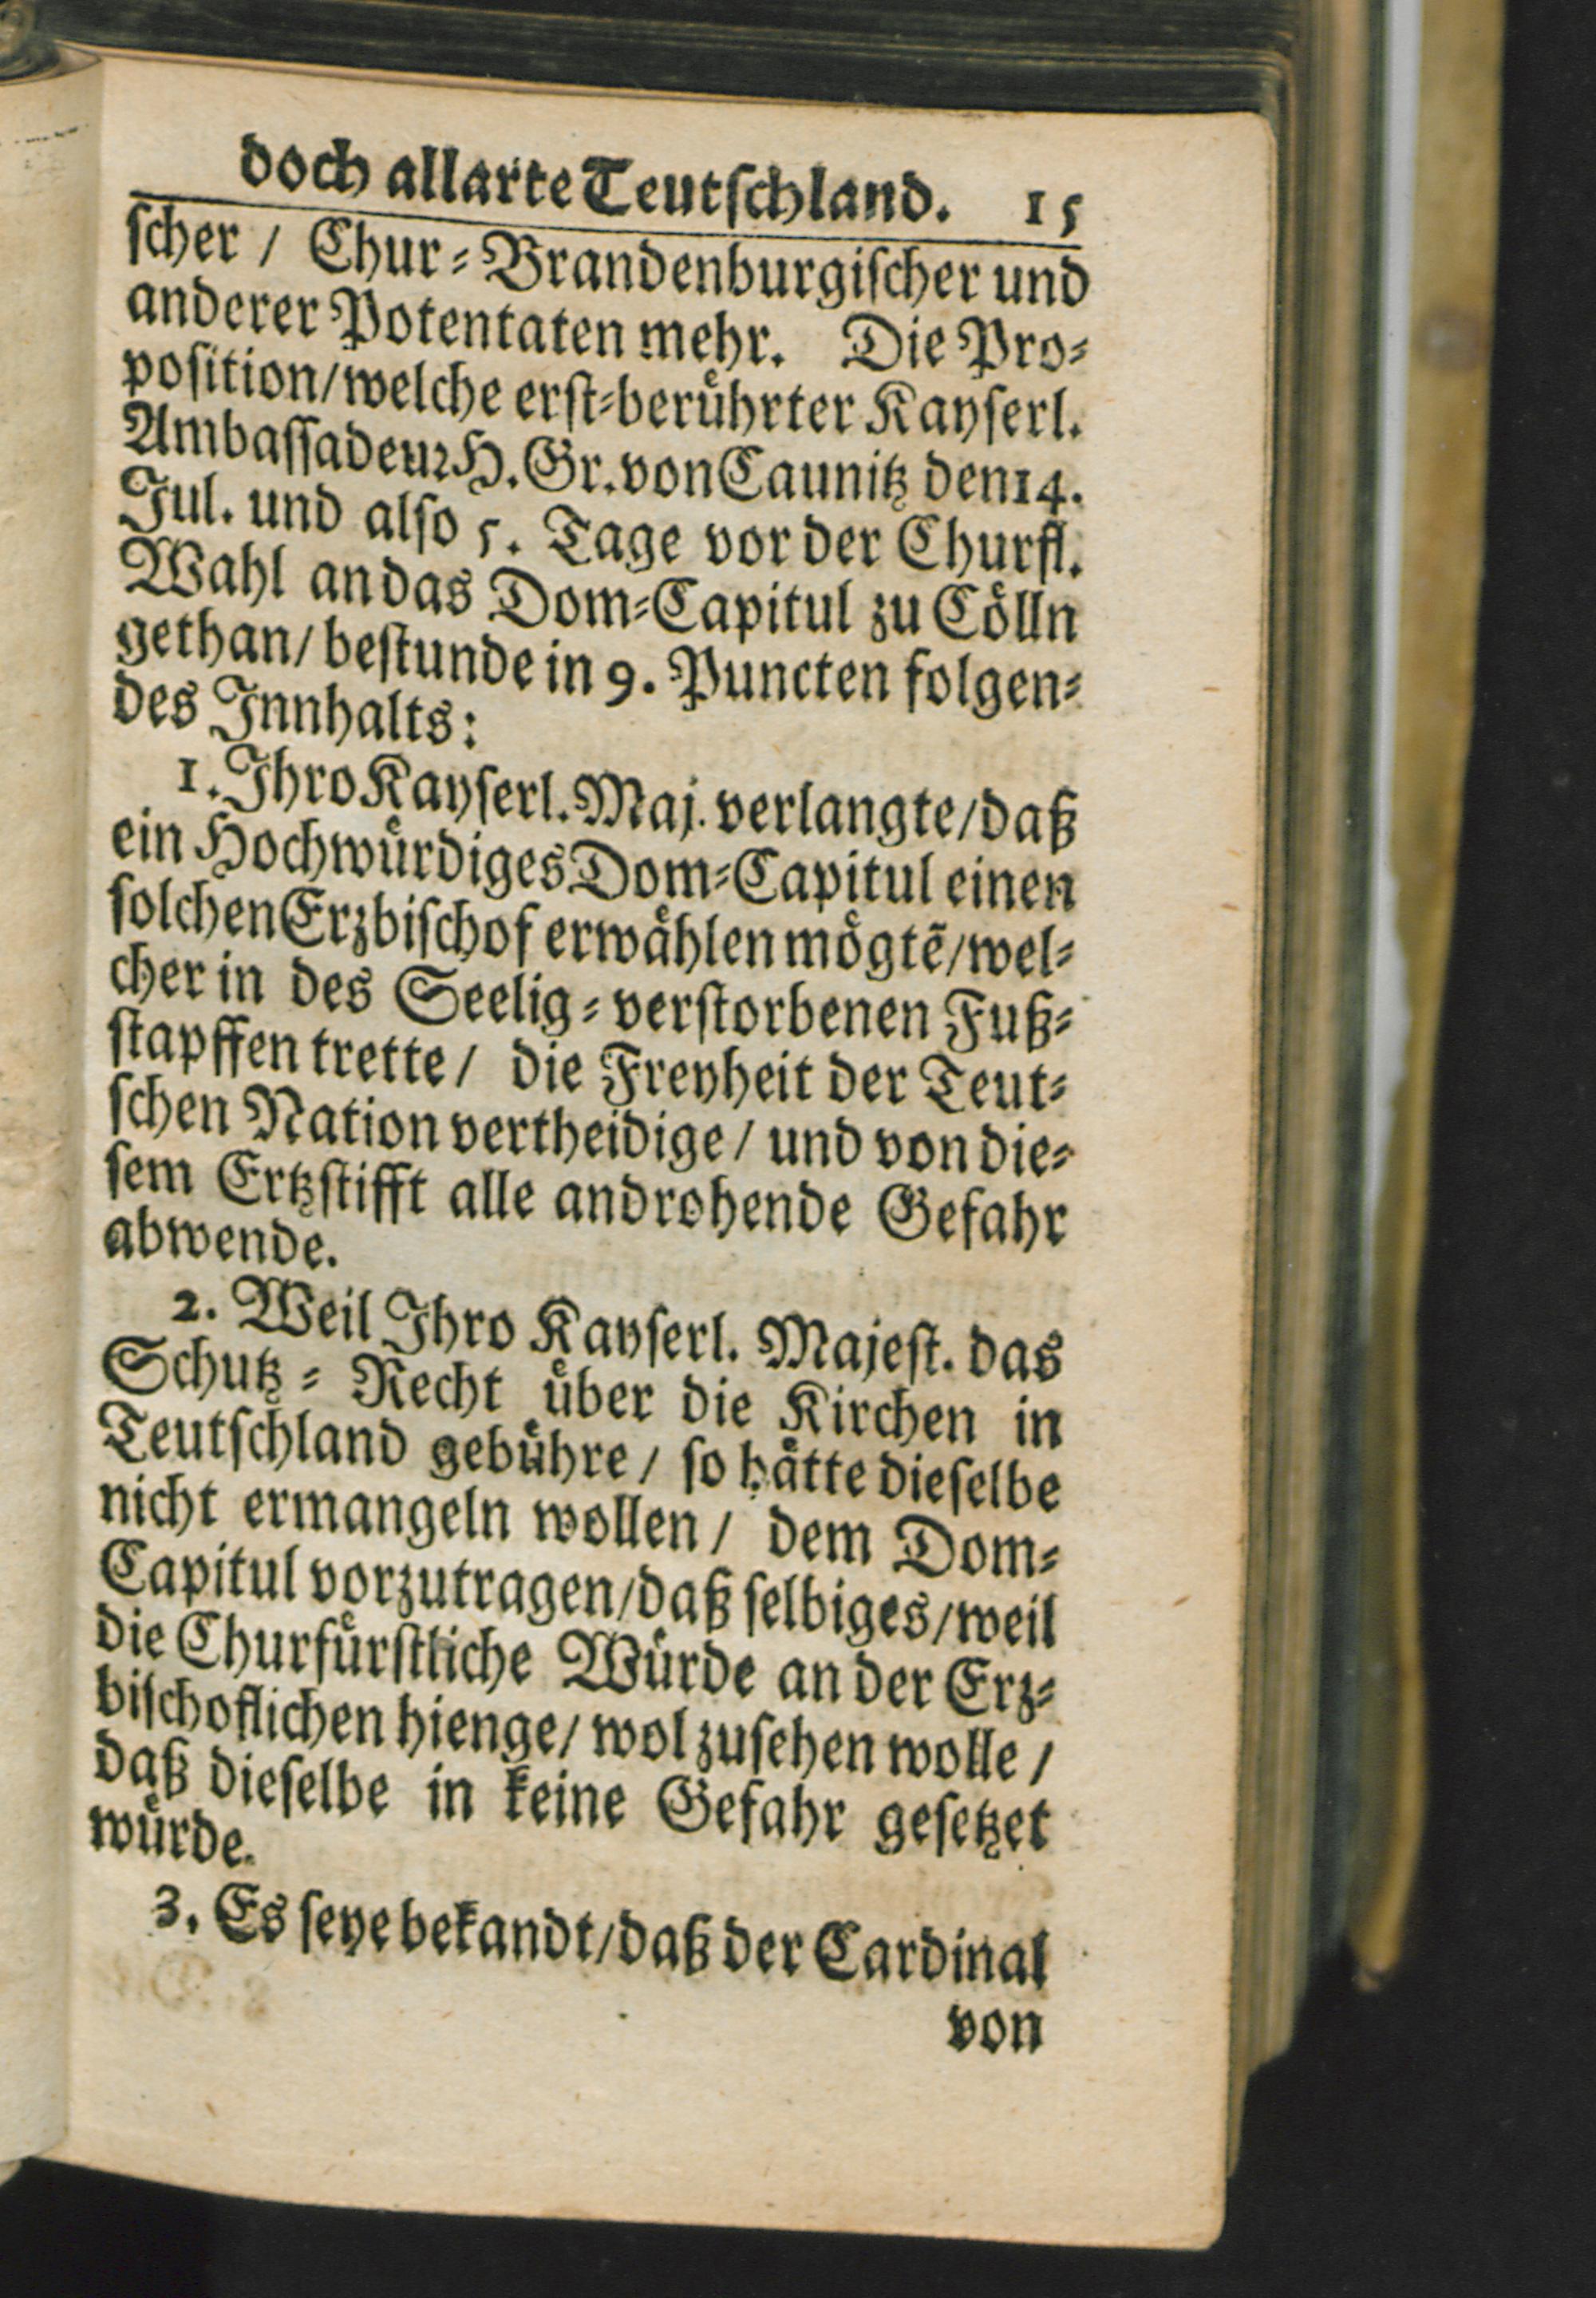 doch allarte Teutſchland. 15
ſcher / Chur⸗Brandenburgiſcher und
anderer Potentaten mehr. Die Pro⸗
poſition/welche erſt⸗beruͤhrter Kayſerl.
Ambaſſadeur H. Gr. von Caunitz den 14.
Jul. und alſo 5. Tage vor der Churfl.
Wahl an das Dom⸗Capitul zu Coͤlln
gethan/ beſtunde in 9. Puncten folgen⸗
des Innhalts:
1. Ihro Kayſerl. Maj. verlangte/daß
ein Hochwuͤrdiges Dom⸗Capitul einen
ſolchen Erzbiſchof erwaͤhlen moͤgtē/wel⸗
cher in des Seelig⸗verſtorbenen Fuß⸗
ſtapffen trette/ die Freyheit der Teut⸗
ſchen Nation vertheidige/ und von die⸗
ſem Ertzſtifft alle androhende Gefahr
abwende.
2. Weil Ihro Kayſerl. Majeſt. das
Schutz⸗Recht uͤber die Kirchen in
Teutſchland gebuͤhre/ ſo haͤtte dieſelbe
nicht ermangeln wollen/ dem Dom⸗
Capitul vorzutragen/daß ſelbiges/weil
die Churfuͤrſtliche Wuͤrde an der Erz⸗
biſchoflichen hienge/ wol zuſehen wolle/
daß dieſelbe in keine Gefahr geſetzet
wuͤrde.
3. Es ſeye bekandt/daß der Cardinal
von